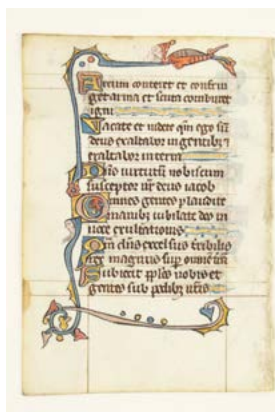 Arcum conteret et confrin
get arma et scuta comburet
igni
Vacate et videte qm̄ ego sū
deus exaltabor in gentibʒ ⁊
exaltabor in terra
Dn̄s virtutū nobiscum
susceptor nr̄ deus iacob
Omnes gentes plaudite
manibʒ iubilate deo in
voce exultationis
Qm̄ dn̄s excelsus t̄ribilis
rex magnus sup̄ omnē t̄rā
Subiecit pp̄los nobis et
gentes sub pedibʒ nr̄is